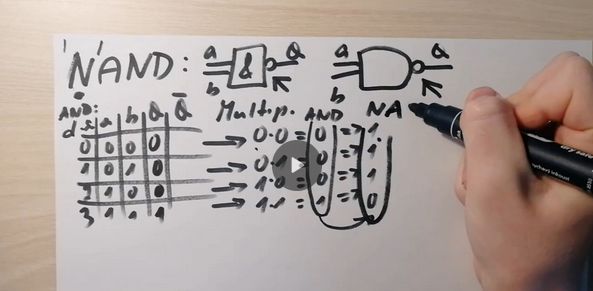 NAND: a b & Q a b Q
AND: Multip. AND NA
d a b Q Q̄
0 0 0 0 → 0·0 = 0 => 1
1 0 1 0 → 0·1 = 0 => 1
2 1 0 0 → 1·0 = 0 => 1
3 1 1 1 → 1·1 = 1 0